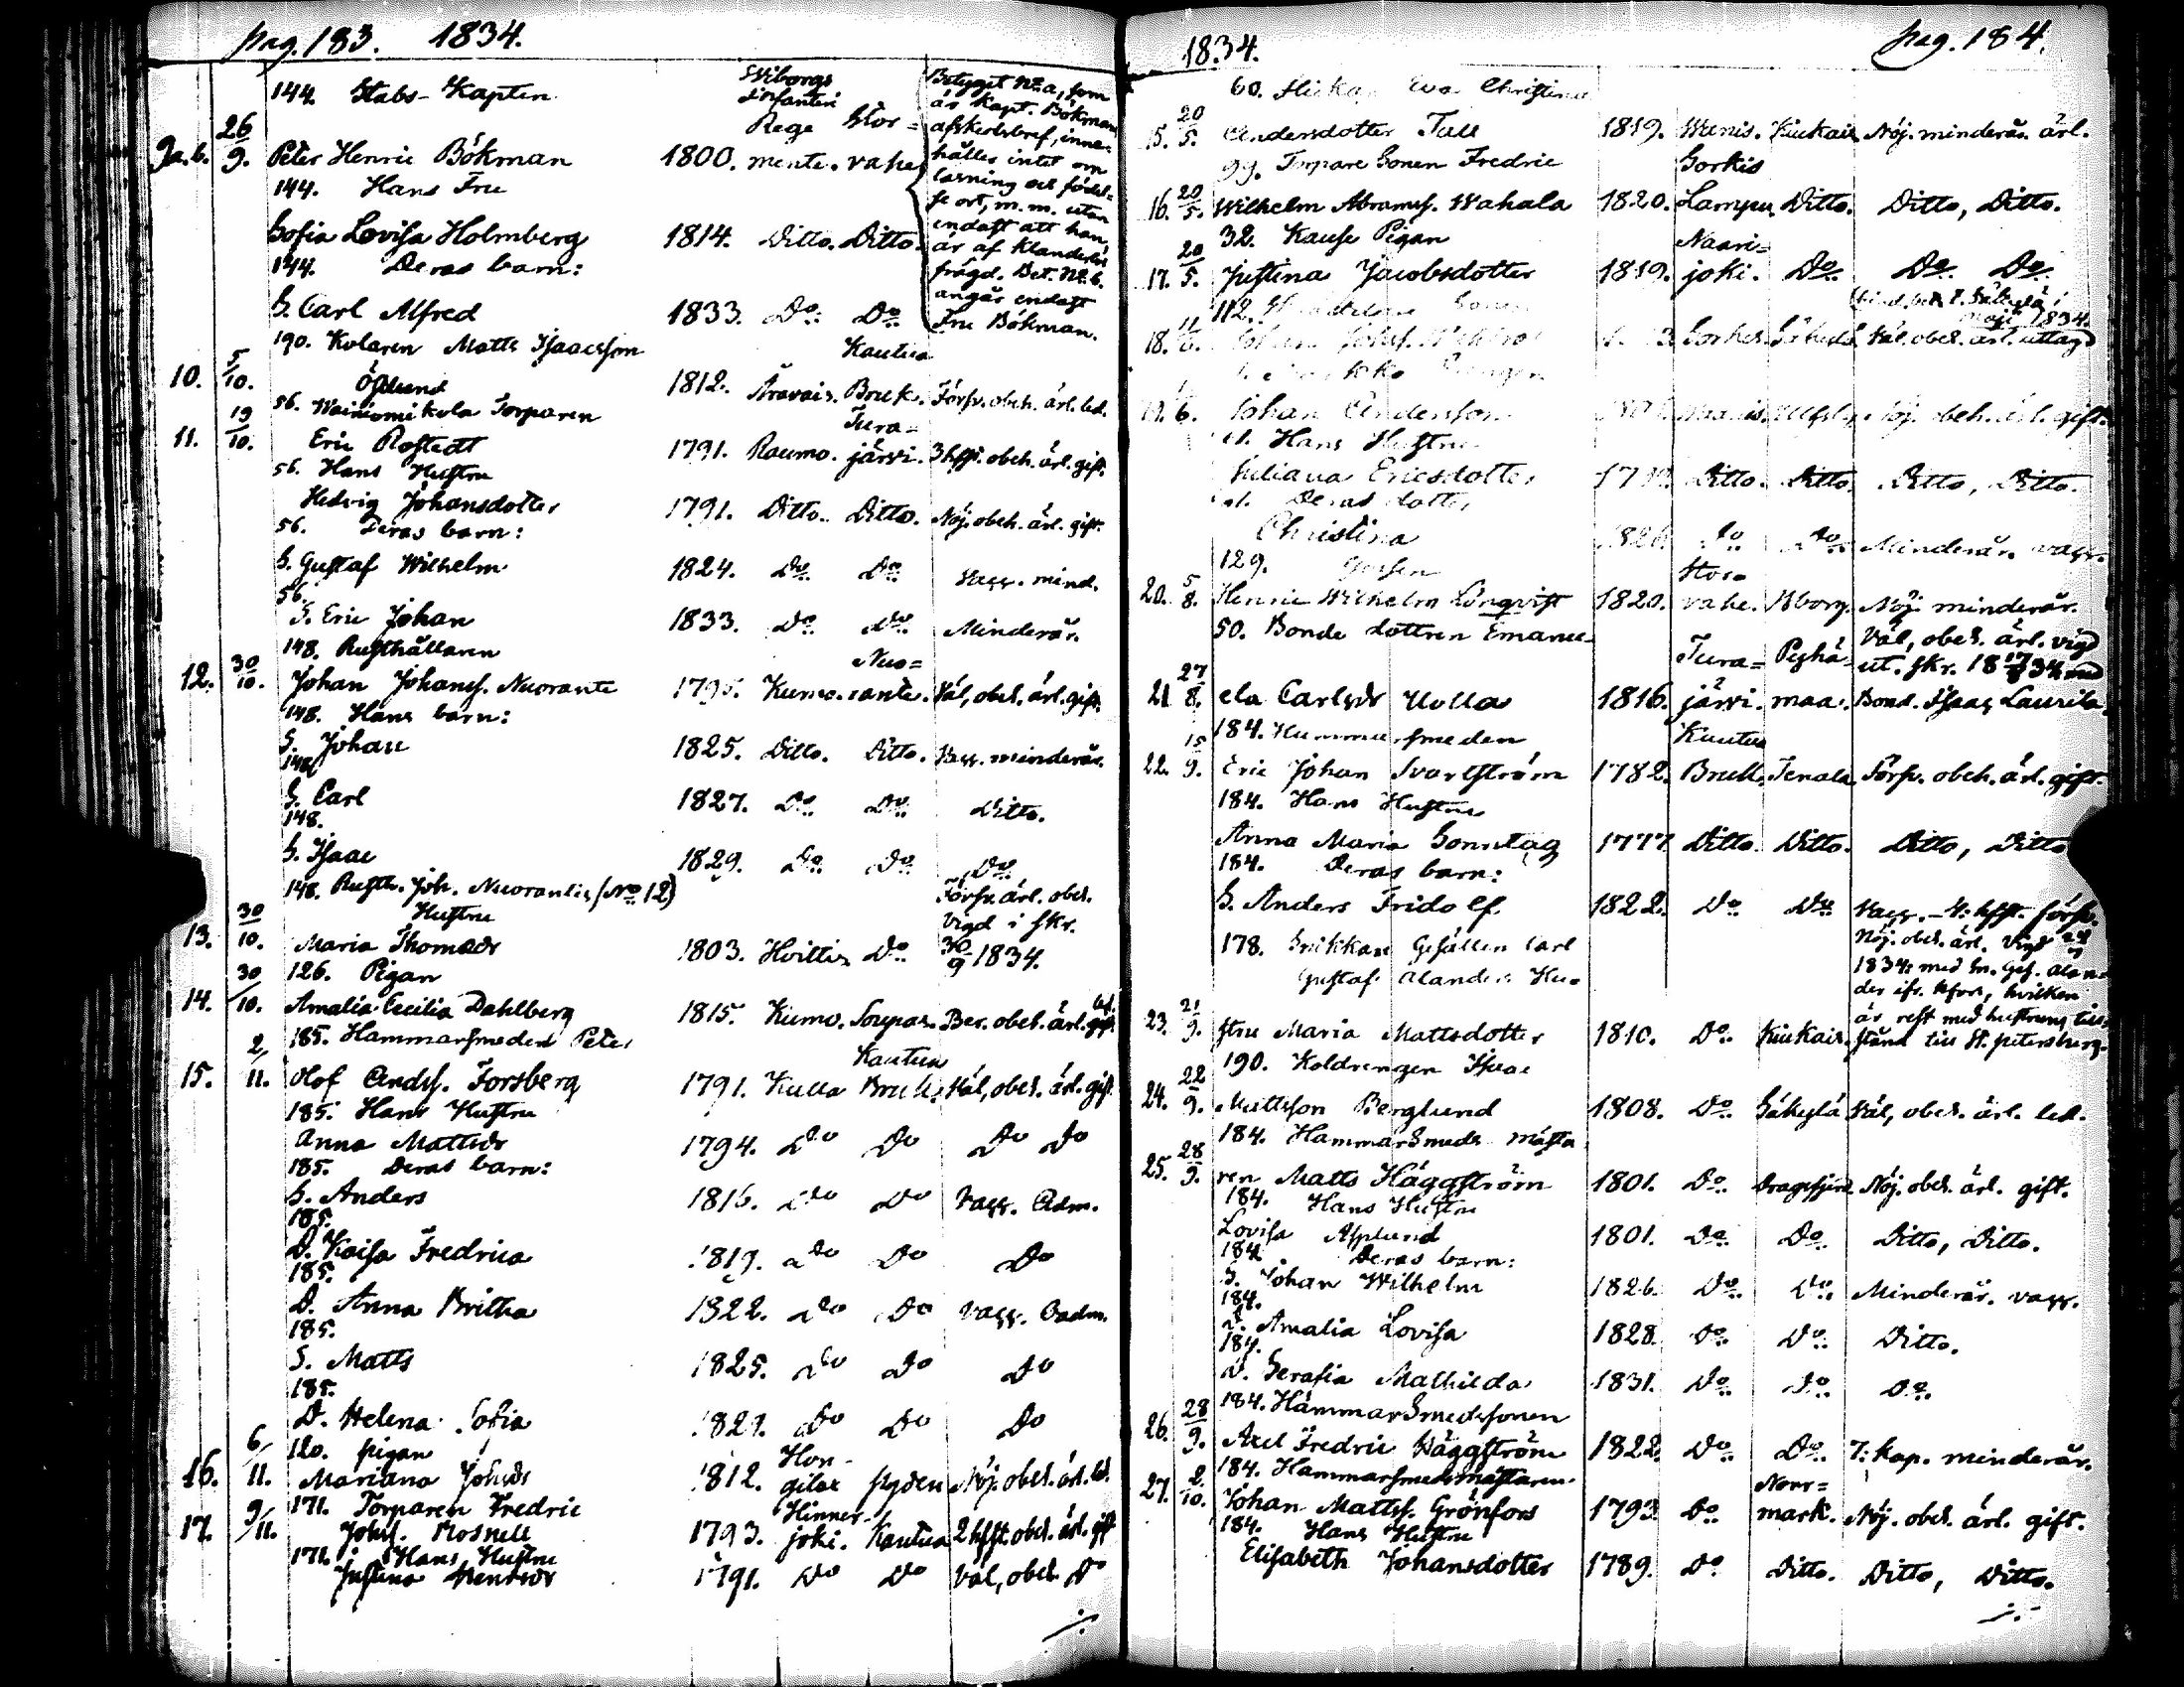 pag. 183. 1834.
144. Stabs-Kapten Wiborgs Infanteri Rege-
9a.b. 26/9. Peter Henric Bökman 1800. mente. Storvahe
Betyget No a, som
är Kapt. Bökmans
afskedsbref, inne-
håller intet om
läsning och födel-
se ort, m.m. utan
endast att han
är af Klanderfri
frägd. Bet. No b.
angår endast
Fru Bökman.
144. Hans Fru
Sofia Lovisa Holmberg 1814. Ditto. Ditto.
144. Deras barn:
S. Carl Alfred 1833. Do Do
190. Kolaren Matts Isaacsson Kautua
10. 5/10. Öflund 1812. Aravais. Bruk. Försv. obeh. ärl. led.
56. Wainiomikola Torparen Tura=
11. 19/10. Eric Rostedt 1791. Raumo. järvi. 3 hfst. obeh. ärl. gift.
56. Hans Hustru
Hedvig Johansdotter 1791. Ditto. Ditto. Nöj. obeh. ärl. gift.
56. Deras barn:
S. Gustaf Wilhelm 1824. Do Do Vacc. mind.
56.
S. Eric Johan 1833. Do Do Minderår.
148. Rusthållaren Nuo=
12. 30/10. Johan Johanss. Nuorante 1795. Kumo. rante. Väl, obeh. ärl. gift.
148. Hans barn:
S. Johan 1825. Ditto. Ditto. Vacc. minderår.
148.
S. Carl 1827. Do Do Ditto.
148.
S. Isaac 1829. Do Do Do
148. Rusth. Joh. Nuorantes (No 12) Försv. ärl. obeh.
Hustru Vigd i skr.
13. 30/10. Maria Thomasdr 1803. Hvittis Do 30/9 1834.
126. Pigan
14. 30/10. Amalia Cecilia Dahlberg 1815. Kumo. Ber. obeh. ärl. led.
185. Hammarsmeden Peter Kautua
15. 2/11. Olof Andss. Forsberg 1791. Kulla Bruk. Väl, obeh. ärl. gift
185. Hans Hustru
Anna Mattsdr 1794. Do Do Do Do
185. Deras barn:
S. Anders 1816. Do Do Vacc. Adm.
185.
D. Kaisa Fredrica 1819. Do Do Do
185.
D. Anna Britha 1822. Do Do Vacc. Oadm.
185.
S. Matts 1825. Do Do Do
185.
D. Helena Sofia 1829. Do Do Do
120. pigan Hon-
16. 6/11. Mariana Johsdr 1812. gilax Pyden Nöj. obeh. ärl. led.
171. Torparen Fredric Hinner-
17. 9/11. Johss. Rosnell 1793. joki. Kautua 2 hfst. obeh. ärl. gift
171. Hans Hustru
Justina Hendrsdr 1791. Do Do Väl, obeh. Do
1834. pag. 184.
60. Flickan Eva Christina
15. 20/5. Andersdotter Tall 1819. Wanis. Kiukais Nöj. minderår. ärl.
99. Torpare Sonen Fredric Sorkis
16. 20/5. Wilhelm Abramss. Wahala 1820. Lampu Ditto. Ditto, Ditto.
32. Kause Pigan Naari=
17. 20/5. Justina Jacobsdotter 1819. joki. Do Do Do
1834.
112. Sonen
18. Väl. obeh. ärl. uttagd
19. 1/6. Johan Andersson Nöj. obeh. ärl. gift.
Hans Hustru
Juliana Ericsdotter Ditto. Ditto. Ditto, Ditto.
Deras dotter
Christina Do Do Minderår. vacc.
129. Gossen Stor=
20. 5/8. Henric Wilhelm Lönqvist 1820. vahe. Åborg. Nöj. minderår.
50. Bonde dottren Emanue- Väl, obeh. ärl. vigd
Tura= Pyhä- ut. skr. 18 17/ 34 med
21. 27/8. ela Carlsdr Uolla 1816. järvi. maa. Bond. Isaac Laurila.
184. Hammarsmeden Kautua
22. 15/9. Eric Johan Svartström 1782. Bruk. Tenala Försv. obeh. ärl. gift.
184. Hans Hustru
Anna Maria Sonntag 1777. Ditto. Ditto. Ditto, Ditto
184. Deras barn:
S. Anders Fridolf 1822. Do Do Vacc. - 4: hfst. försv.
178. Snikkare Gesällen Carl Nöj. obeh. ärl. Vigd
Gustaf Alanders Hu= 1834 med Sn. Ges. Alan-
der ifr. hfors, hvilken
är rest med hustruns till-
23. 21/9. stru Maria Mattsdotter 1810. Do Kiukais. stånd till St. petersburg.
190. Koldrengen Isaac
24. 22/9. Mattsson Berglund 1808. Do Säkylä Väl, obeh. ärl. led.
184. HammarSmeds mästa
25. 28/9. ren Matts Häggström 1801. Do Dragsfjerd Nöj. obeh. ärl. gift.
184. Hans Hustru
Lovisa Asplund 1801. Do Do Ditto, Ditto.
184. Deras barn:
S. Johan Wilhelm 1826. Do Do Minderår. vacc.
184.
D. Amalia Lovisa 1828. Do Do Ditto.
184.
D. Serafia Mathilda 1831. Do Do Do.
184. HammarSmedssonen
26. 28/9. Axel Fredric Häggström 1822. Do Do 7: kap. minderår.
184. Hammarsmedsmästaren Norr=
27. 2/10. Johan Mattss. Grönfors 1793. Do mark. Nöj. obeh. ärl. gift.
184. Hans Hustru
Elisabeth Johansdotter 1789. Do Ditto. Ditto, Ditto.